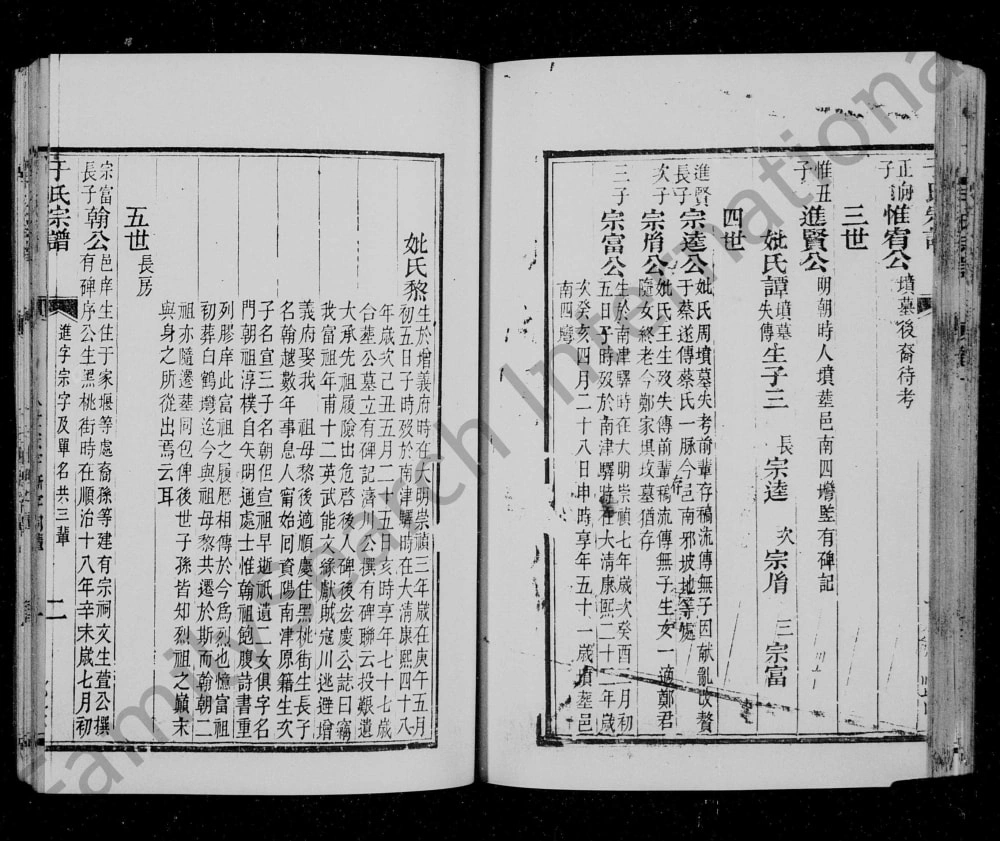 正府子惟宥公 墳墓後裔待考
三世
惟丑子進賢公 明朝時人墳塟邑南四灣竪有碑記
妣氏譚 墳墓失傳 生子三 長宗逵 次宗脩 三宗富
四世
進賢長子宗逵公 妣氏周墳墓失考前輩存稿流傳無子因献亂改贅于蔡遂傳蔡氏一脉今邑南邪坡地等處
次子宗脩公 妣氏王生歿失傳前輩稿流傳無子生女一適鄭君隨女終老今鄭家垻坟墓猶存
三子宗富公 生於南津驛時在大明崇禎七年歲次癸酉二月初五日子時歿於南津驛時在大清康熙二十二年歲次癸亥四月二十八日申時享年五十一歲墳塟邑南四灣
妣氏黎 生於增義府時在大明崇禎三年歲在庚午五月
初五日子時歿於南津驛時在大清康熙四十八
年歲次己丑五月二十五日亥時享年七十七歲
合塟公墓立有碑記濟川公撰有碑聯云投艱遺
大承先祖履險出危啓後人碑後宏慶公誌曰竊
我富祖年甫十二英武能文緣獻賊寇川逃避增
義府娶我 祖母黎後適順慶住黑桃街生長子
名翰越數年事息人甯始囘資陽南津原籍生次
子名宣三子名朝但宣祖早逝祇遺二女俱字名
門朝祖淳樸自矢明通處士惟翰祖飽腹詩書重
列膠庠此富祖之履歷相傳於今爲烈也憶富祖
初葬白鶴灣迄今與祖母黎共遷於斯而翰朝二
祖亦隨遷塟同包俾後世子孫皆知烈祖之巔末
與身之所從出焉云耳
五世 長房
宗富長子翰公 邑庠生住于家堰等處裔孫等建有宗祠文生萱公撰有碑序公生黑桃街時在順治十八年辛末歲七月初
于氏宗譜 進字宗字及單名共三輩 二